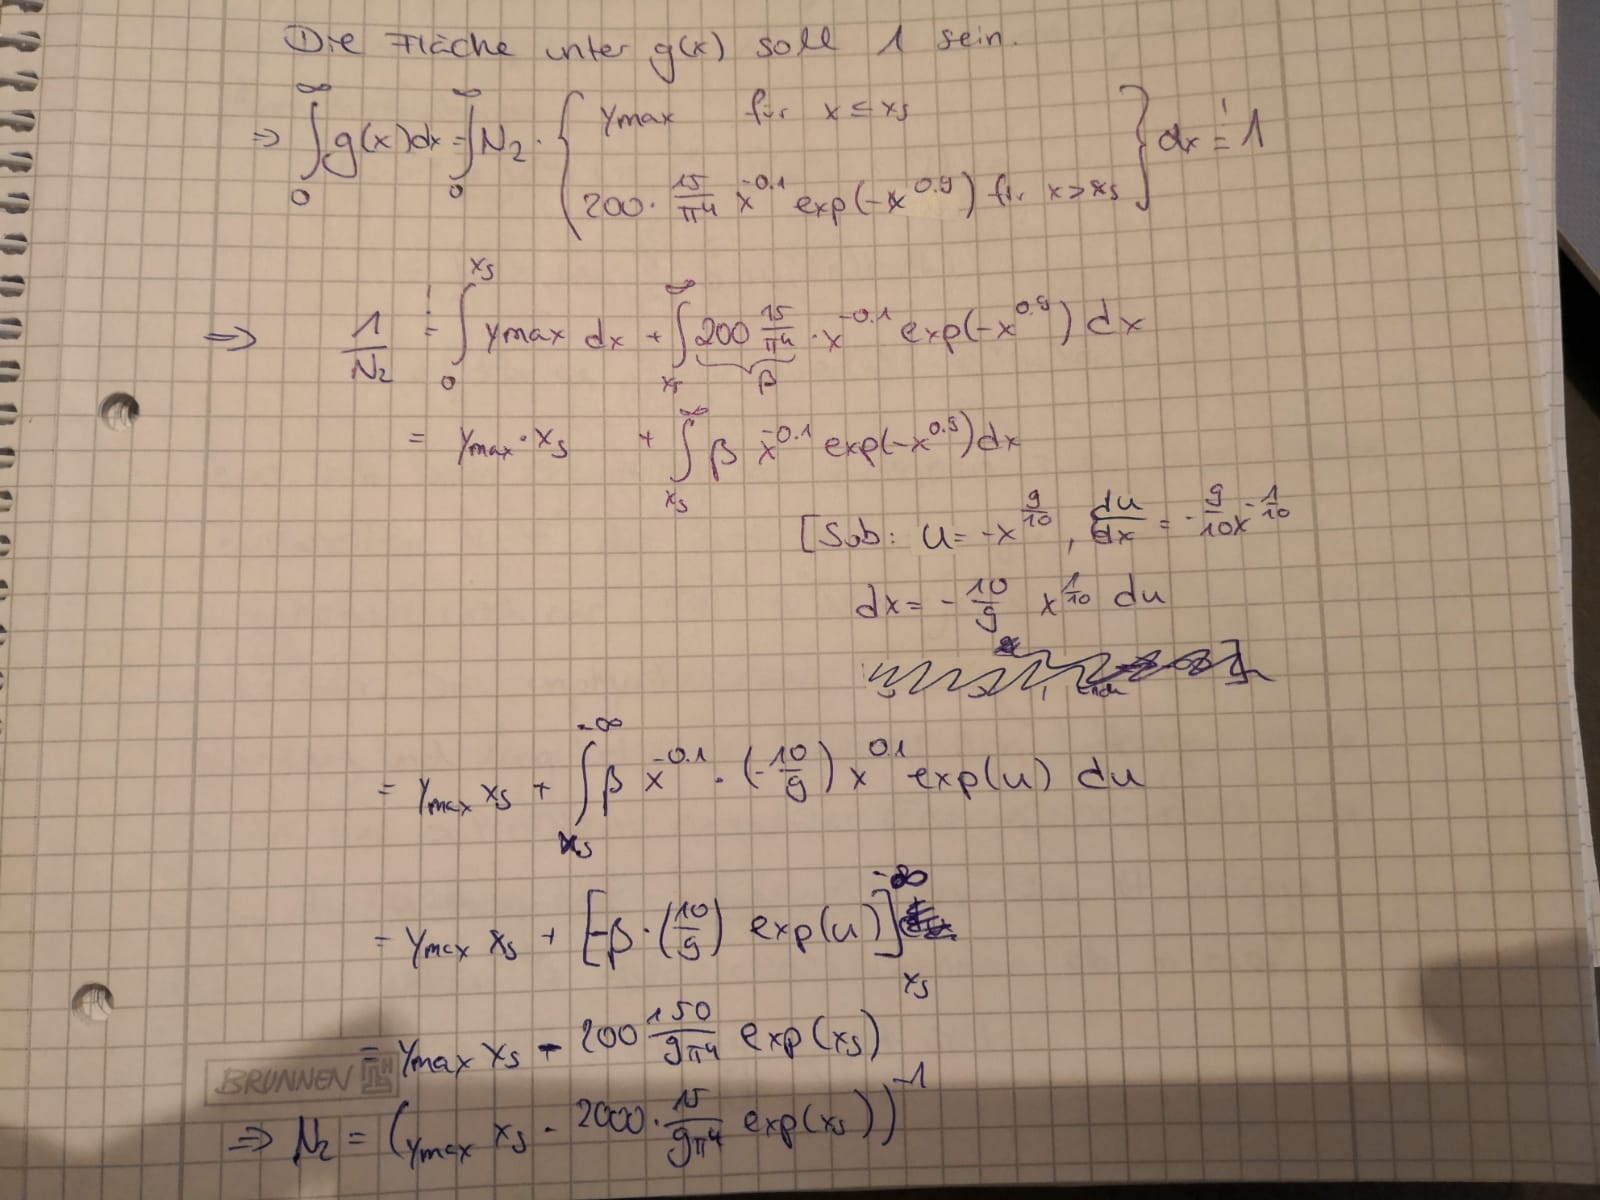 Die Fläche unter g(x) soll 1 sein.
⇒ ∫₀^∞ g(x)dx = ∫₀^∞ N₂ · { ymax für x ≤ xs
200 · 15/π⁴ x^-0.1 exp(-x^0.9) für x > xs } dx =! 1
⇒ 1/N₂ =! ∫₀^xs ymax dx + ∫_xs^∞ 200 15/π⁴ · x^-0.1 exp(-x^0.9) dx
β
= ymax · xs + ∫_xs^∞ β x^-0.1 exp(-x^0.9) dx
[Sub: u = -x^9/10, du/dx = -9/10 x^-1/10
dx = -10/9 x^1/10 du
= ymax xs + ∫_xs^-∞ β x^-0.1 · (-10/9) x^0.1 exp(u) du
= ymax xs + [-β · (10/9) exp(u)]_xs^-∞
= ymax xs - 200 150/9π⁴ exp(xs)
BRUNNEN
⇒ N₂ = (ymax xs - 2000 · 15/9π⁴ exp(xs))^-1